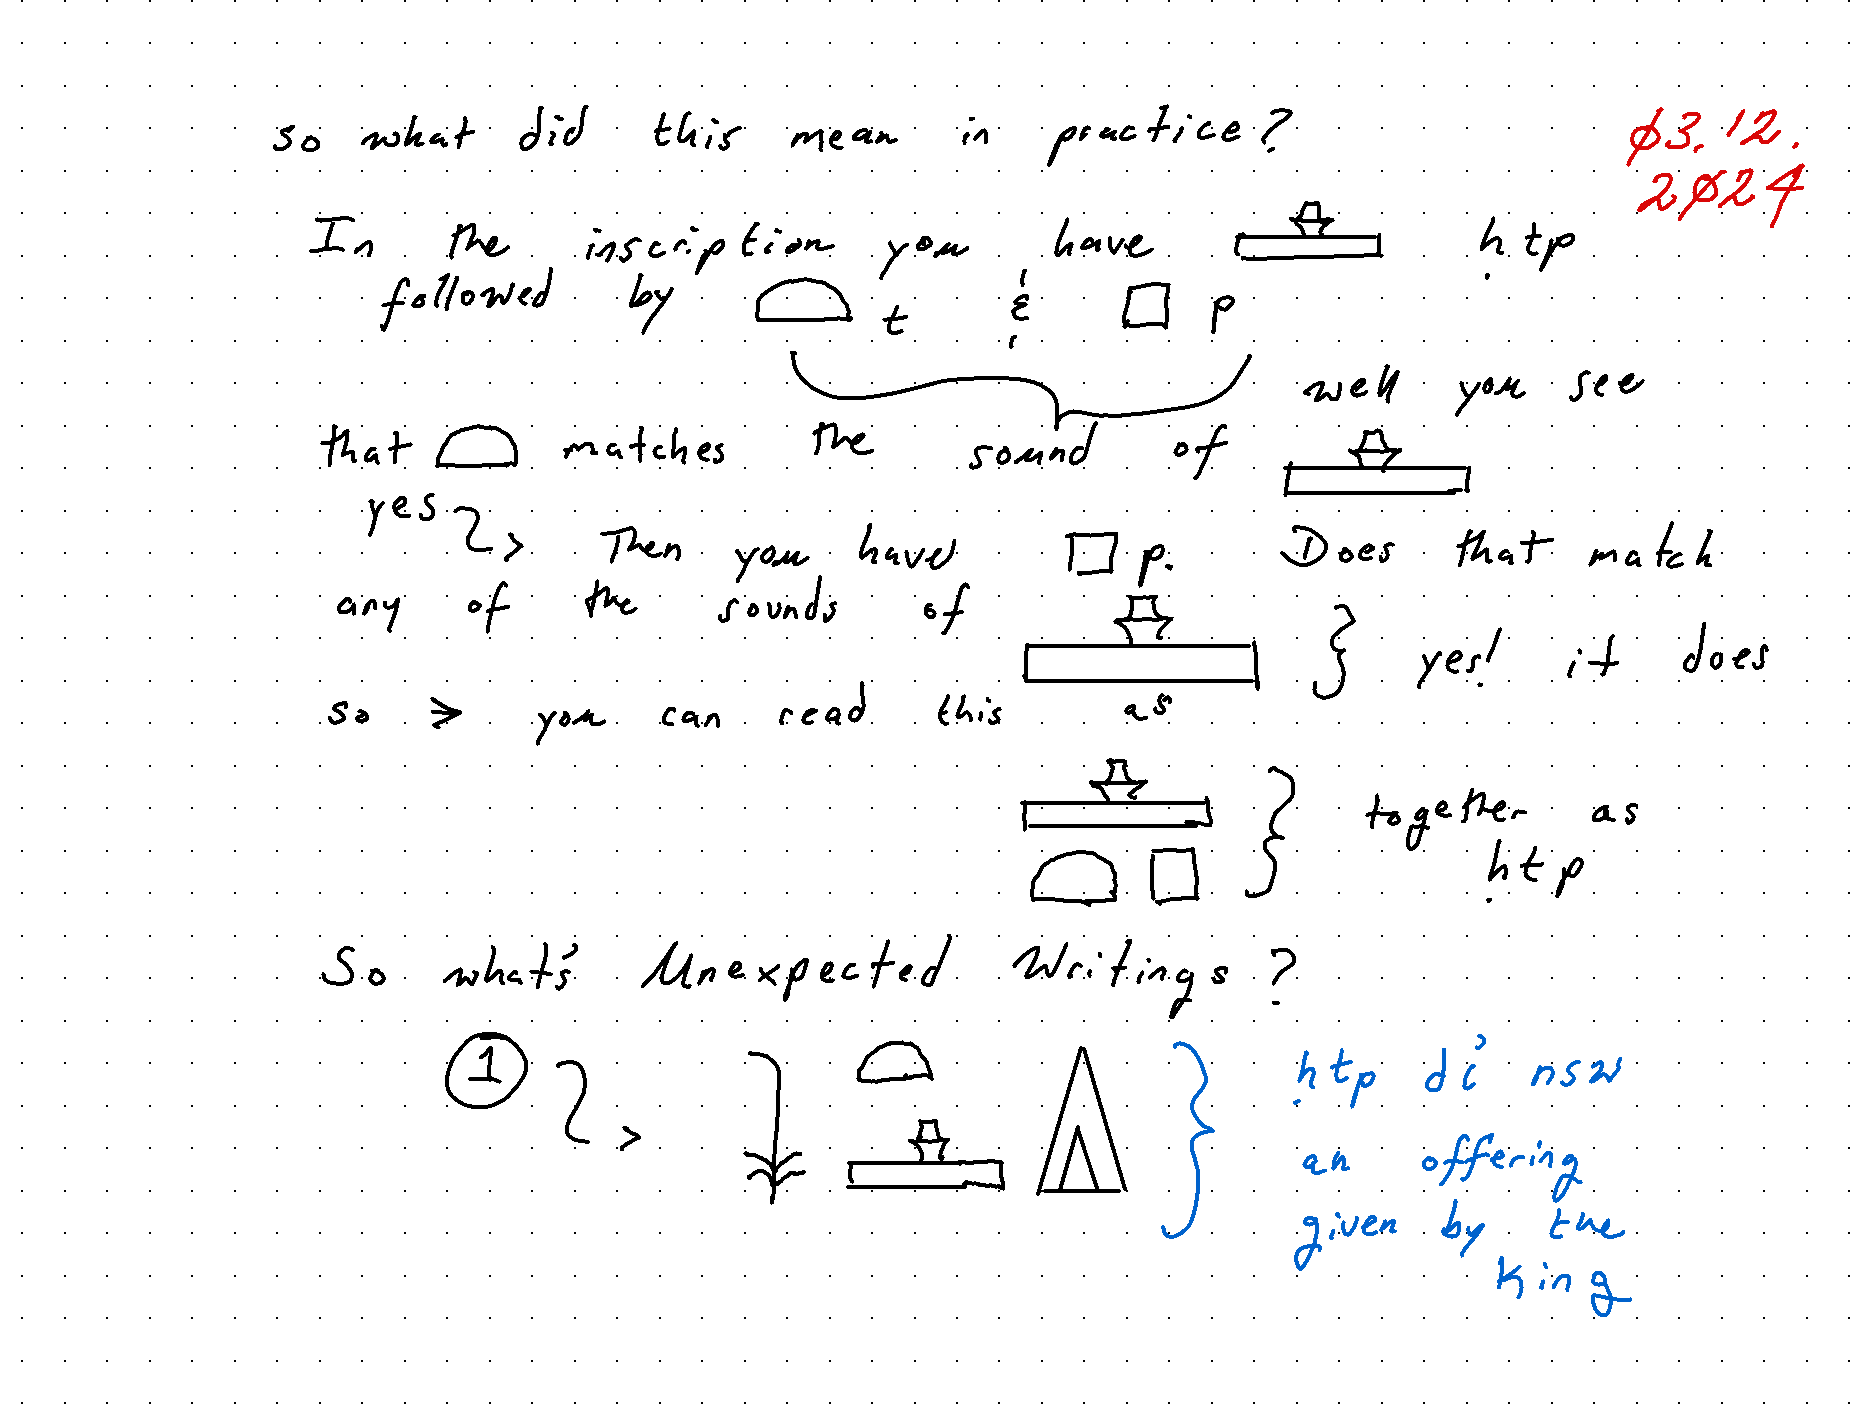 so what did this mean in practice?
Ø3.12.
2Ø24
In the inscription you have 𓊵 ḥtp
followed by 𓏏 t & 𓊪 p
well you see
that 𓏏 matches the sound of 𓊵
yes
Then you have 𓊪 p. Does that match
any of the sounds of 𓊵 } yes! it does
so > you can read this as
𓊵𓏏𓊪 } together as
ḥtp
So what's Unexpected Writings?
① 𓇓𓏏𓊵𓏙 } ḥtp dỉ nsw
an offering
given by the
King